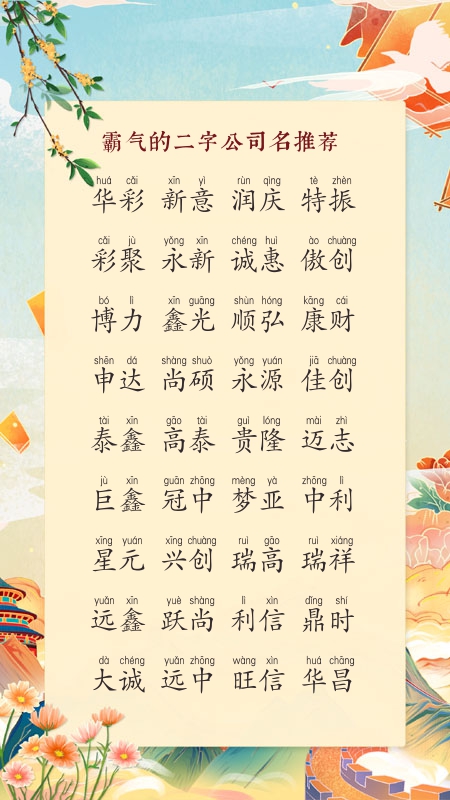 霸气的二字公司名推荐
huá cǎi xīn yì rùn qìng tè zhèn
华彩 新意 润庆 特振
cǎi jù yǒng xīn chéng huì ào chuàng
彩聚 永新 诚惠 傲创
bó lì xīn guāng shùn hóng kāng cái
博力 鑫光 顺弘 康财
shēn dá shàng shuò yǒng yuán jiā chuàng
申达 尚硕 永源 佳创
tài xīn gāo tài guì lóng mài zhì
泰鑫 高泰 贵隆 迈志
jù xīn guān zhōng mèng yà zhōng lì
巨鑫 冠中 梦亚 中利
xīng yuán xīng chuàng ruì gāo ruì xiáng
星元 兴创 瑞高 瑞祥
yuǎn xīn yuè shàng lì xìn dǐng shí
远鑫 跃尚 利信 鼎时
dà chéng yuǎn zhōng wàng xìn huá chāng
大诚 远中 旺信 华昌